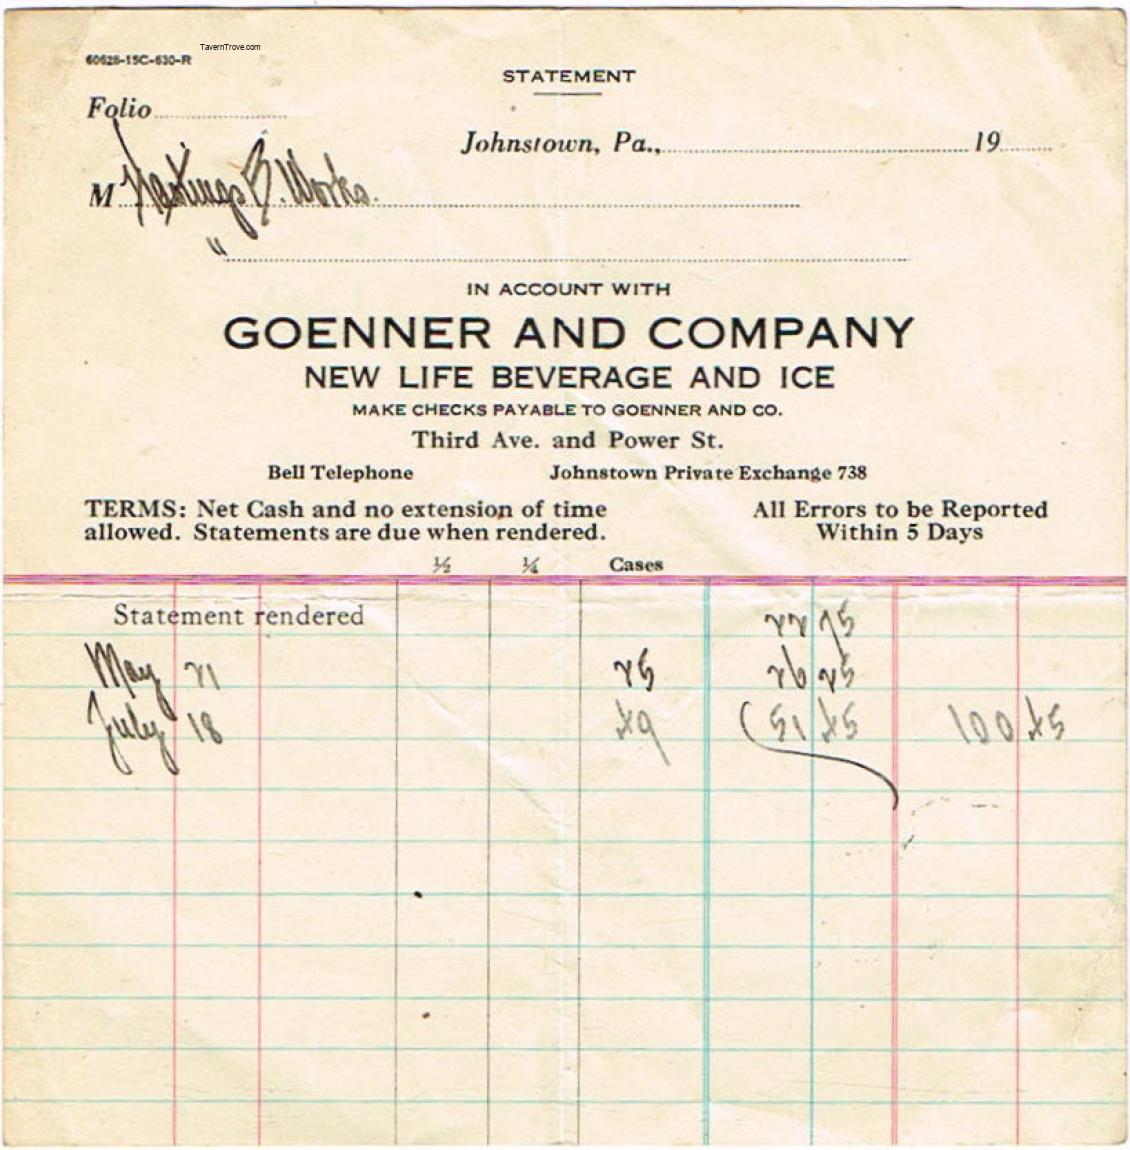 TavernTrove.com
60628-15C-630-R
STATEMENT
Folio
Johnstown, Pa., 19
M Hastings B. Works.
"
IN ACCOUNT WITH
GOENNER AND COMPANY
NEW LIFE BEVERAGE AND ICE
MAKE CHECKS PAYABLE TO GOENNER AND CO.
Third Ave. and Power St.
Bell Telephone Johnstown Private Exchange 738
TERMS: Net Cash and no extension of time
allowed. Statements are due when rendered.
All Errors to be Reported
Within 5 Days
½ ¼ Cases
Statement rendered 22 75
May 21 25 26 25
July 18 49 51 45 100 45